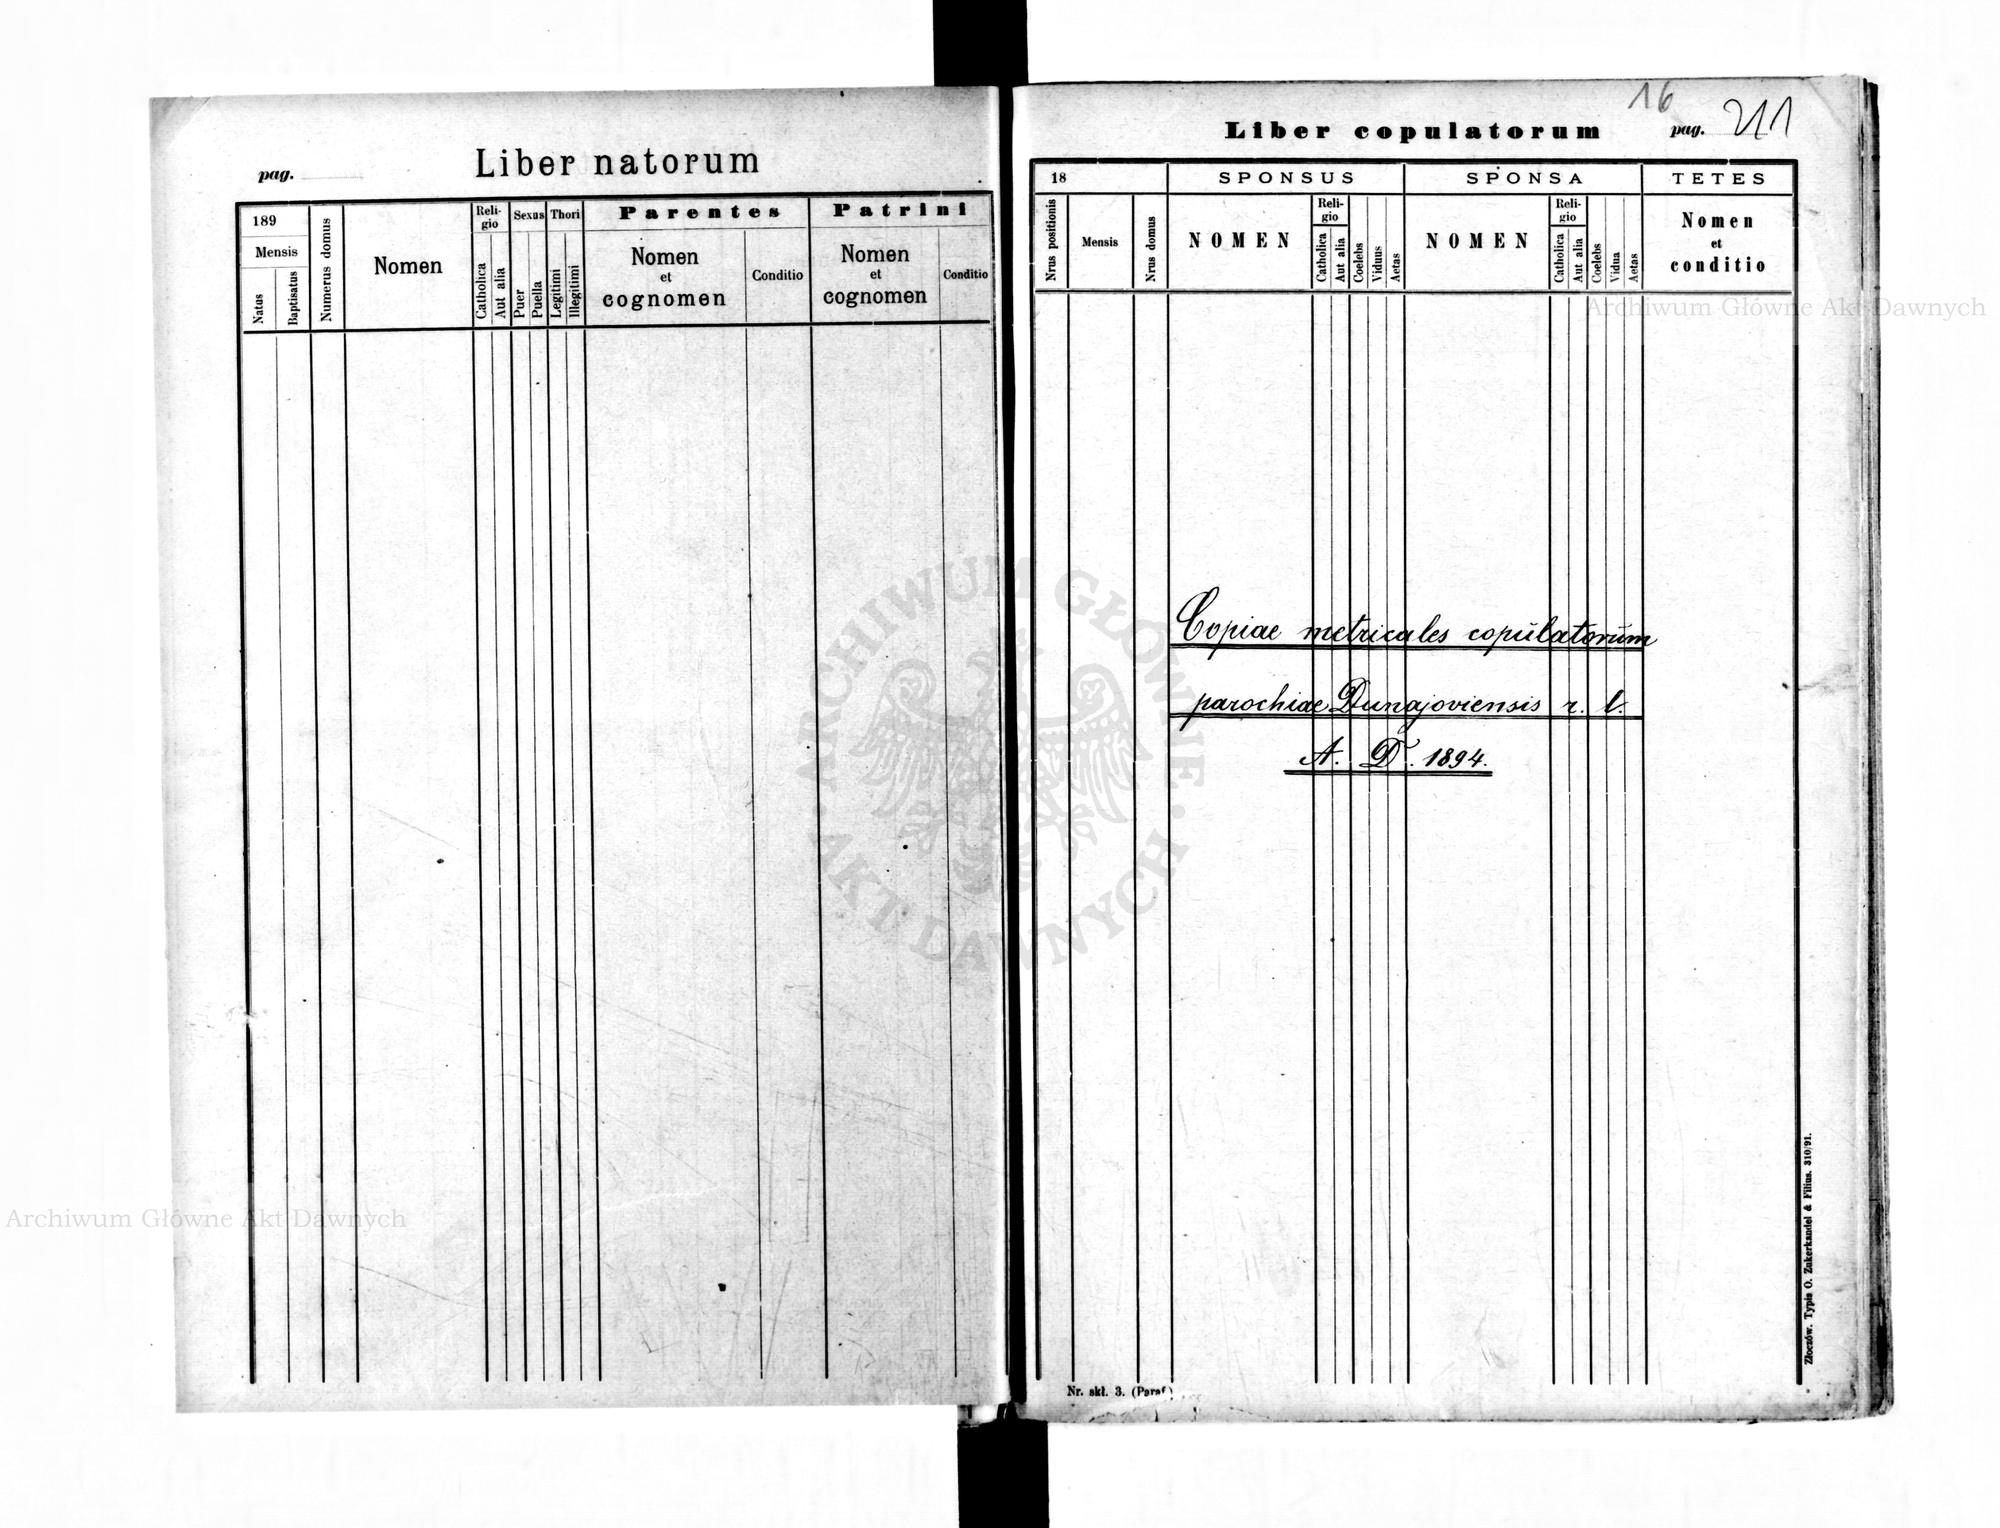 pag.
Liber natorum
189
Mensis
Natus
Baptisatus
Numerus domus
Nomen
Reli-
gio
Catholica
Aut alia
Sexus
Puer
Puella
Thori
Legitimi
Illegitimi
Parentes
Nomen
et
cognomen
Conditio
Patrini
Nomen
et
cognomen
Conditio
16
Liber copulatorum
pag. 211
18
Nrus positionis
Mensis
Nrus domus
SPONSUS
NOMEN
Reli-
gio
Catholica
Aut alia
Coelebs
Viduus
Aetas
SPONSA
NOMEN
Reli-
gio
Catholica
Aut alia
Coelebs
Vidua
Aetas
TETES
Nomen
et
conditio
Copiae metricales copulatorum
parochiae Dunajoviensis r. l.
A. D. 1894.
Złoczów. Typis O. Zukerkandel & Filius. 310/91.
Nr. skł. 3. (Paraf.)
Archiwum Główne Akt Dawnych
ARCHIWUM GŁÓWNE
AKT DAWNYCH
Archiwum Główne Akt Dawnych